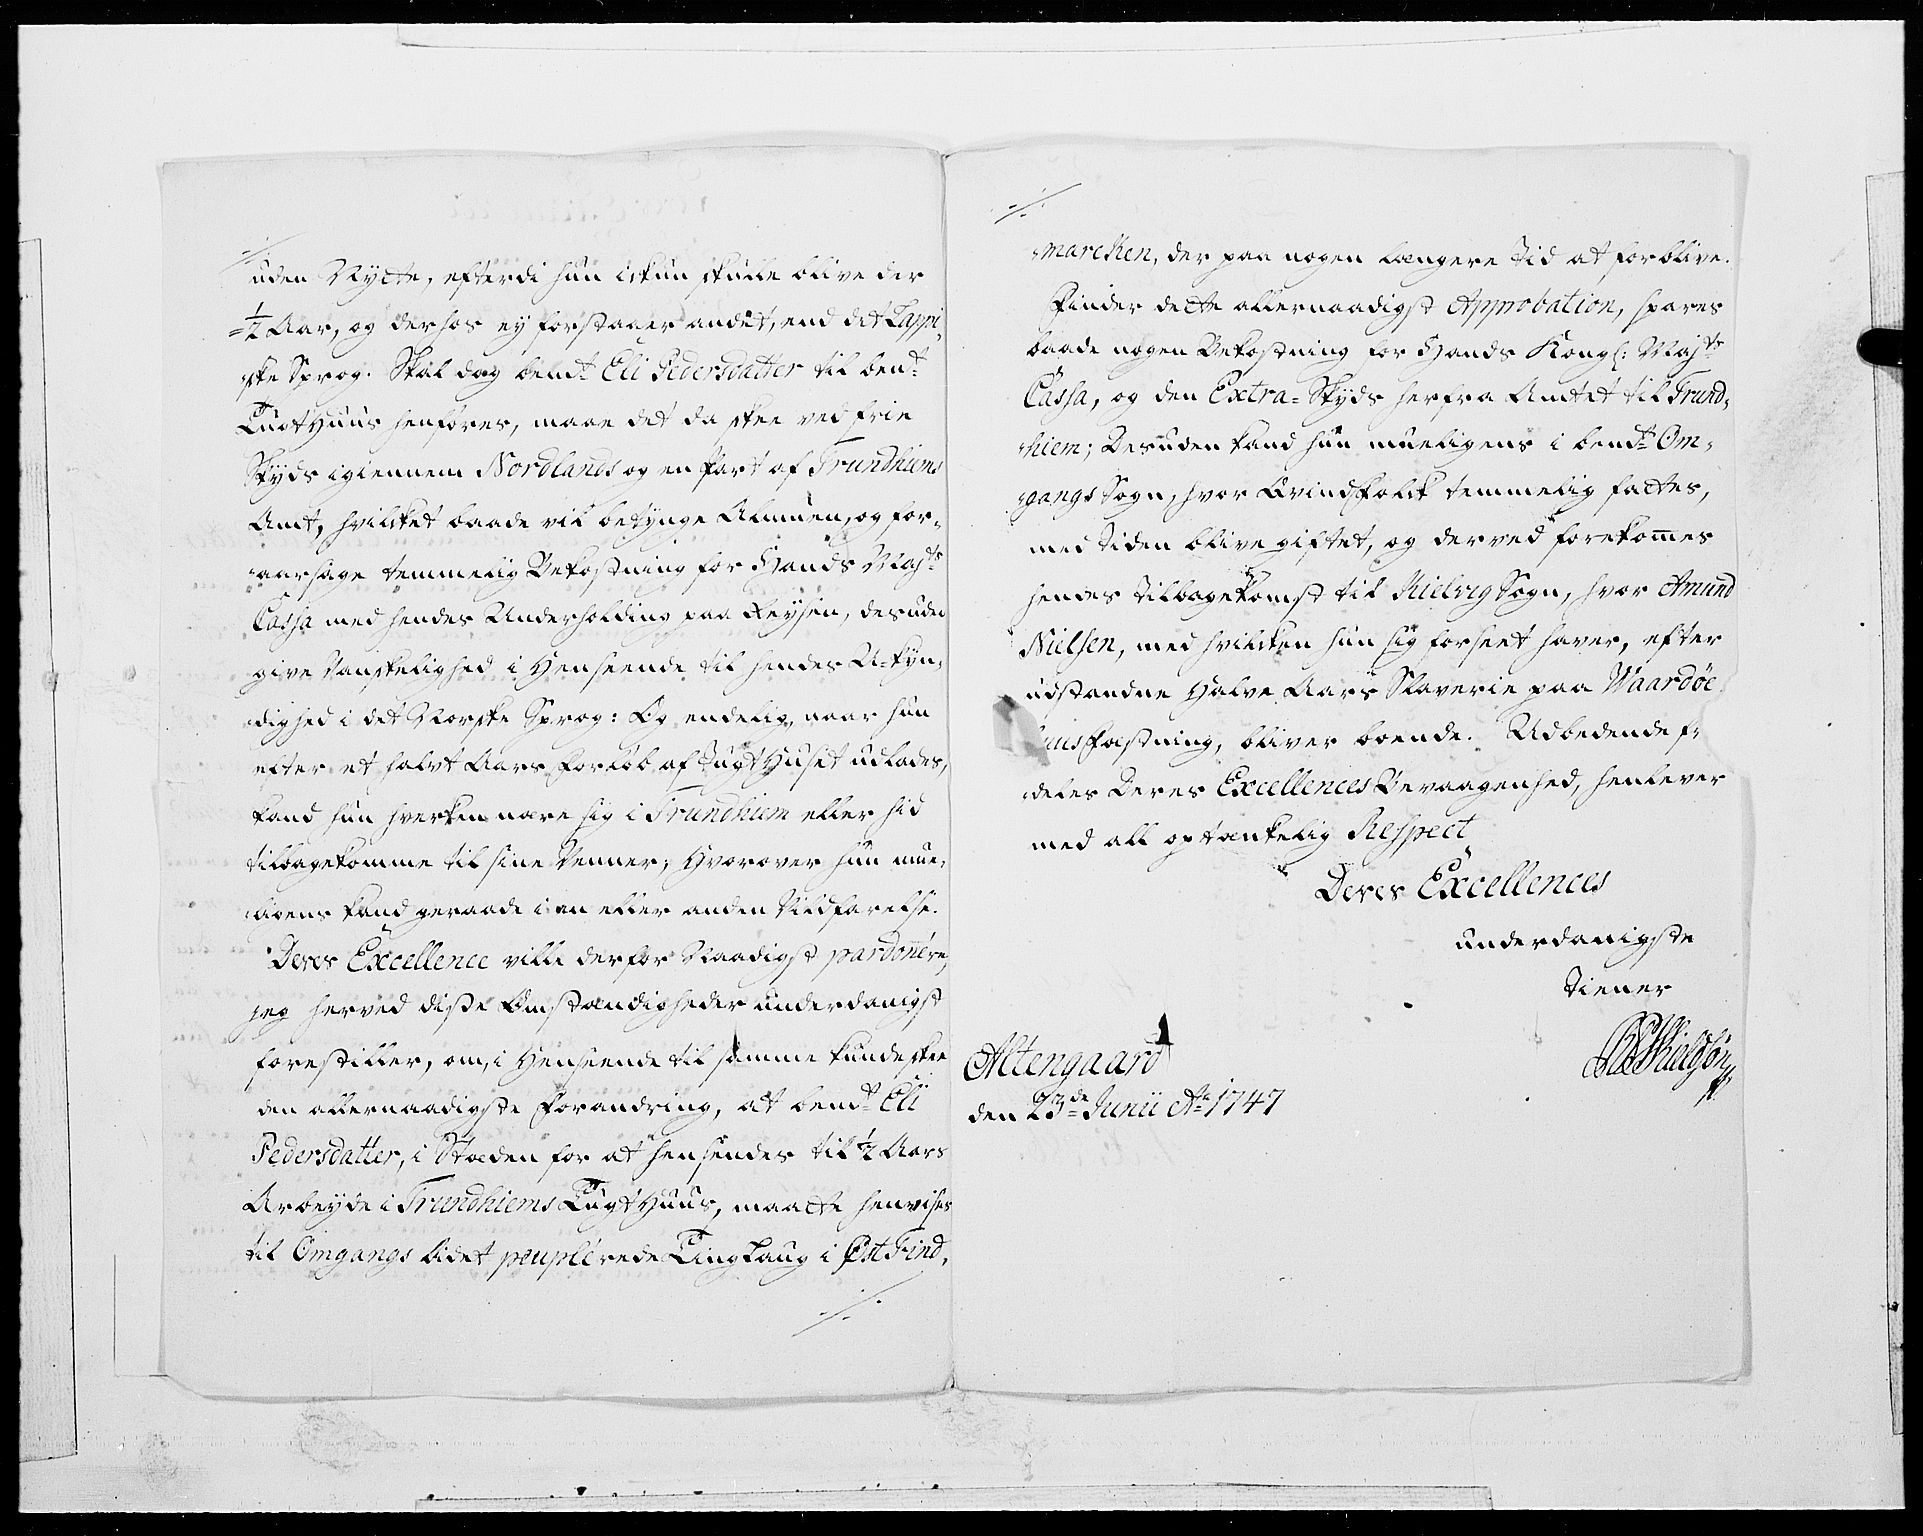 uden Nytte, efterdi hun ickun skulle blive der
=1/2 Aar, og derhos ey forstaaer andet, end det Lappi-
ske Sprog. Skal dog bemt Eli Pedersdatter til bemt
TugtHuus henföres, maae det da skee ved frie
Skyds igiennem Nordlands og en Part af Trundhiems
Amt, hvilcket baade vil betynge Almuen, og for-
aarsage temmelig Bekostning for Hands Majts
Cassa med hendes Underholding paa Reysen, desuden
give Vanskelighed i Henseende til hendes U-kyn-
dighed i det Norske Sprog: Og endelig, naar hun
efter et halvt Aars Forlöb af TugtHuset udlades,
kand hun hverken nære sig i Trundhiem eller hid
tilbagekomme til sine Venner; Hvorover hun mue-
ligens kand geraade i en eller anden Vildfarelse.
Deres Excellence ville derfor Naadigst pardonnére,
jeg herved disse Omstændigheder underdanigst
forestiller, om, i Henseende til samme kunde skee
den allernaadigste Forandring, at bemdt Eli
Pedersdatter, i Stæden for at hensendes til 1/2 Aars
Arbeyde i Trundhiems TugtHuus, maatte henvises
til Omgangs lidet peuplérede TingLaug i Øst-Find-
./.
./.
marcken, der paa nogen længere Tid at forblive.
Finder dette allernaadigst Approbation, spares
baade nogen Bekostning for Hands Kongl: Majts
Cassa, og den Extra-Skyds herfra Amtet til Trund-
hiem; Desuden kand hun mueligens i bemdt Om-
gangs Sogn, hvor Qvindfolck temmelig fattes,
med Tiden blive giftet, og derved forekommes
hendes Tilbagekomst til Kielvig Sogn, hvor Amund
Nielsen, med hvilcken hun sig forseet haver, efter
udstandne Halve Aars Slaverie paa Waardöe
huus Fæstning, bliver boende. Udbedende fr
deles Deres Excellences Bevaagenhed, henlever
med all optænkelig Respect
Deres Excellences
underdanigste
Tiener
Altengaard
den 23de Junii Ao 1747